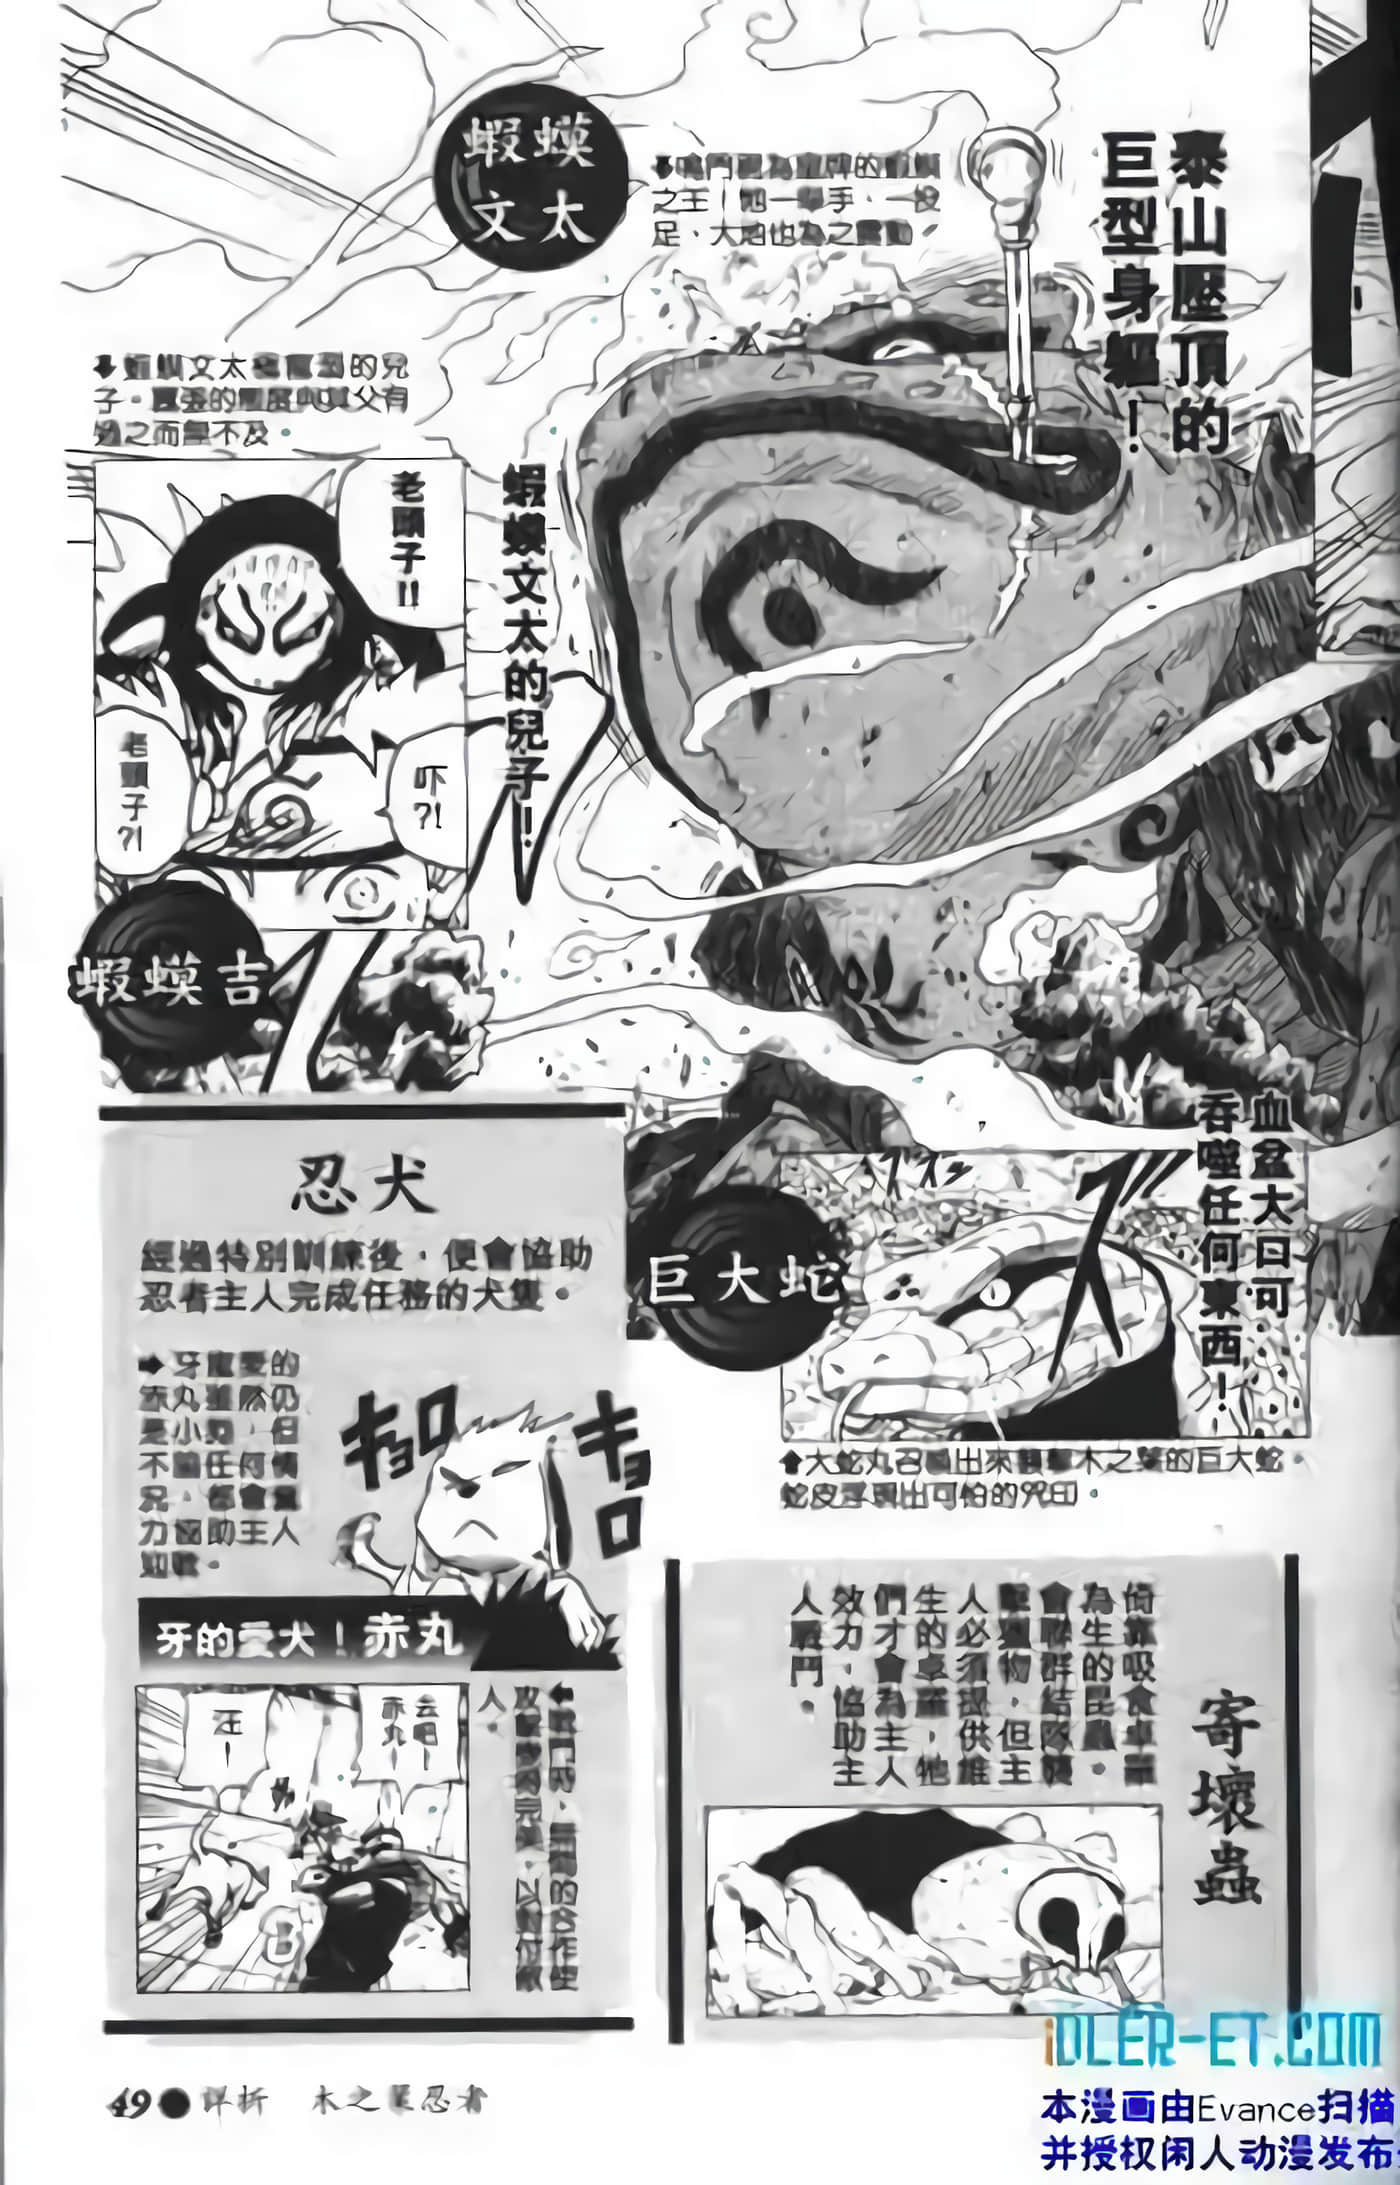 泰山壓頂的
巨型身軀！
蝦蟆
文太
之王！他一舉手、一投
足，大地也為之震動。
的兒
子。囂張的態度與其父有
過之而無不及。
老頭子!!
吓?!
老頭子?!
蝦蟆文太的兒子！
蝦蟆吉
血盆大口可
吞噬任何東西！
巨大蛇
大蛇丸召喚出來襲擊木之葉的巨大蛇。
蛇皮浮現出可怕的咒印。
忍犬
經過特別訓練後，便會協助
忍者主人完成任務的犬隻。
牙寵愛的
赤丸雖然仍
是小狗，但
不論任何情
況，都會盡
力協助主人
キョロ
キョロ
牙的愛犬！赤丸
去吧！
赤丸！
汪！
人。
寄壞蟲
為生的昆蟲。
會群群結隊襲
擊獵物，但主
人必須提供維
生的查克拉，牠
們才會為主人
效力，協助主
人戰鬥。
49●詳析 木之葉忍者
iDLER-ET.COM
本漫画由Evance扫描
并授权闲人动漫发布